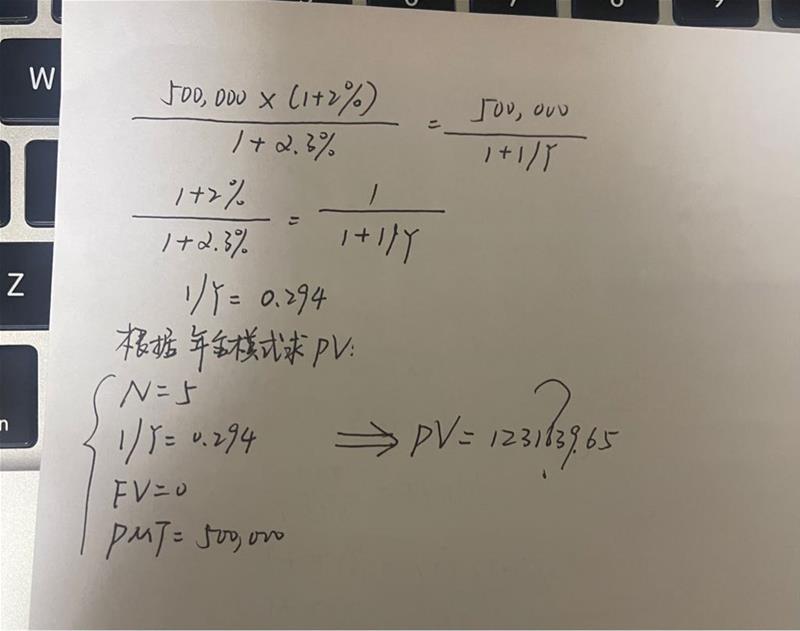 W
Z
n
500,000 × (1+2%) / 1+2.3% = 500,000 / 1+1/Y
1+2% / 1+2.3% = 1 / 1+1/Y
1/Y = 0.294
根据年金模式求PV:
N=5
1/Y=0.294 ⟹ PV= 1231839.65 ?
FV=0
PMT= 500,000